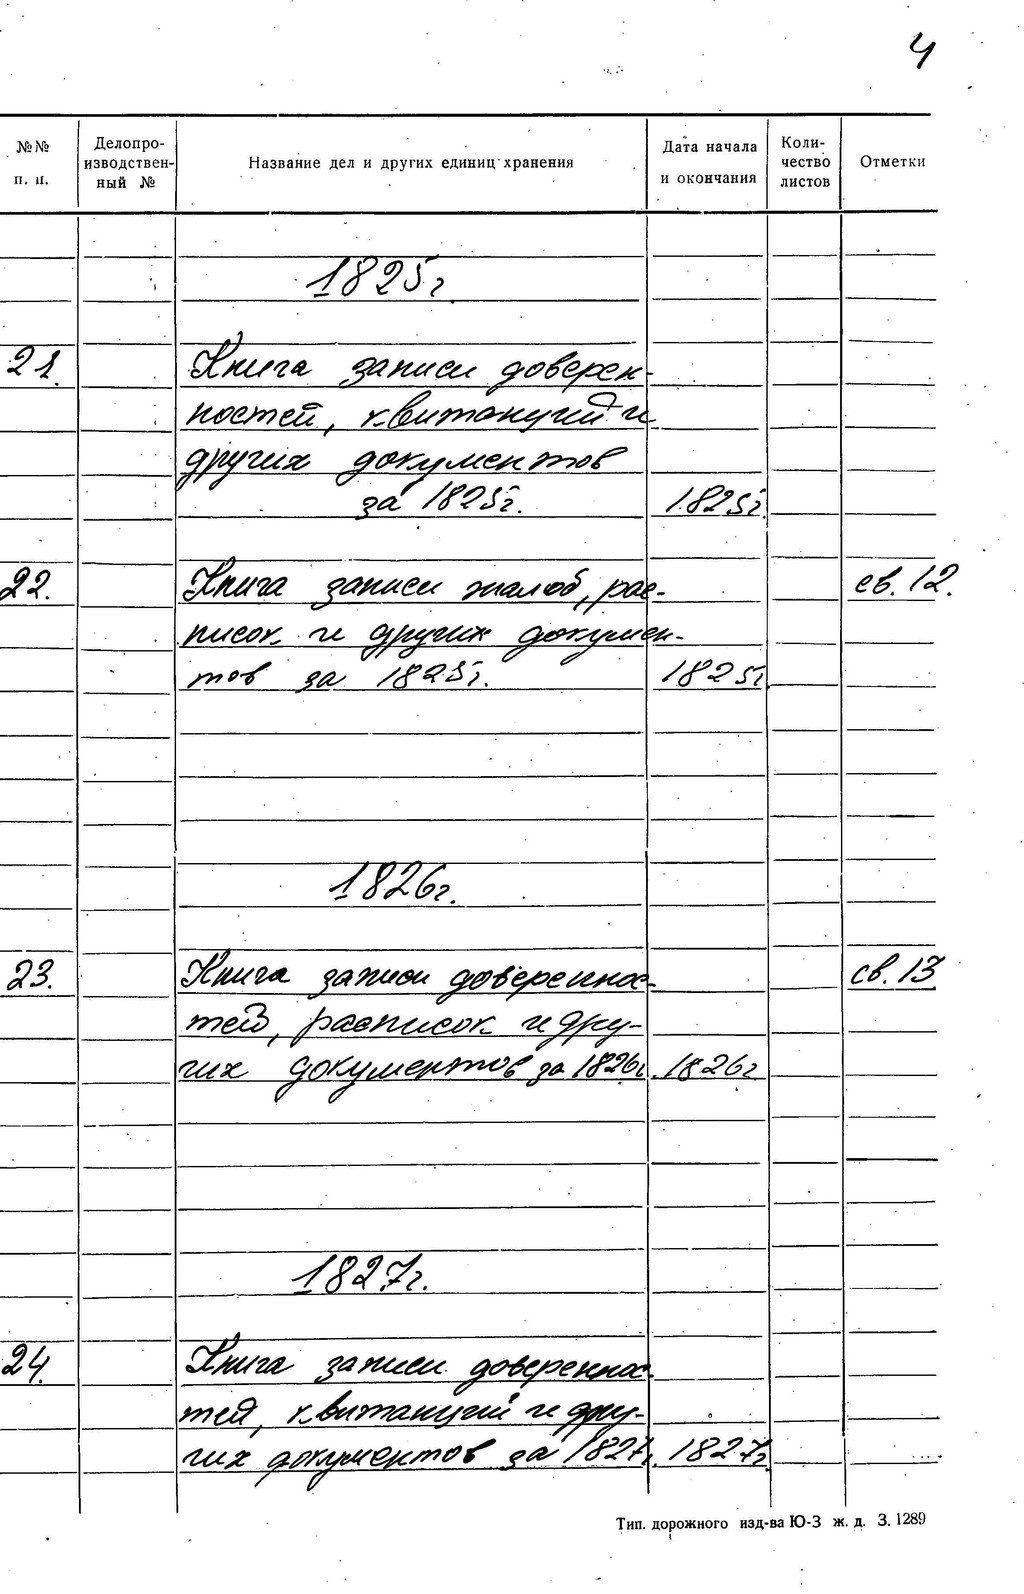 4
№№ п. п.
Делопро-
изводствен-
ный №
Название дел и других единиц хранения
Дата начала
и окончания
Коли-
чество
листов
Отметки
1825г.
21. Книга записи доверен-
ностей, квитанций и
других документов
за 1825г. 1825г.
22. Книга записи жалоб, рас- св. 12.
писок и других докумен-
тов за 1825г. 1825г
1826г.
23. Книга записи довереннос- св. 13
тей, расписок и дру-
гих документов за 1826г. 1826г
1827г.
24. Книга записи довереннос-
тей, квитанций и дру-
гих документов за 1827г. 1827г.
Тип. дорожного изд-ва Ю-З ж. д. З. 1289